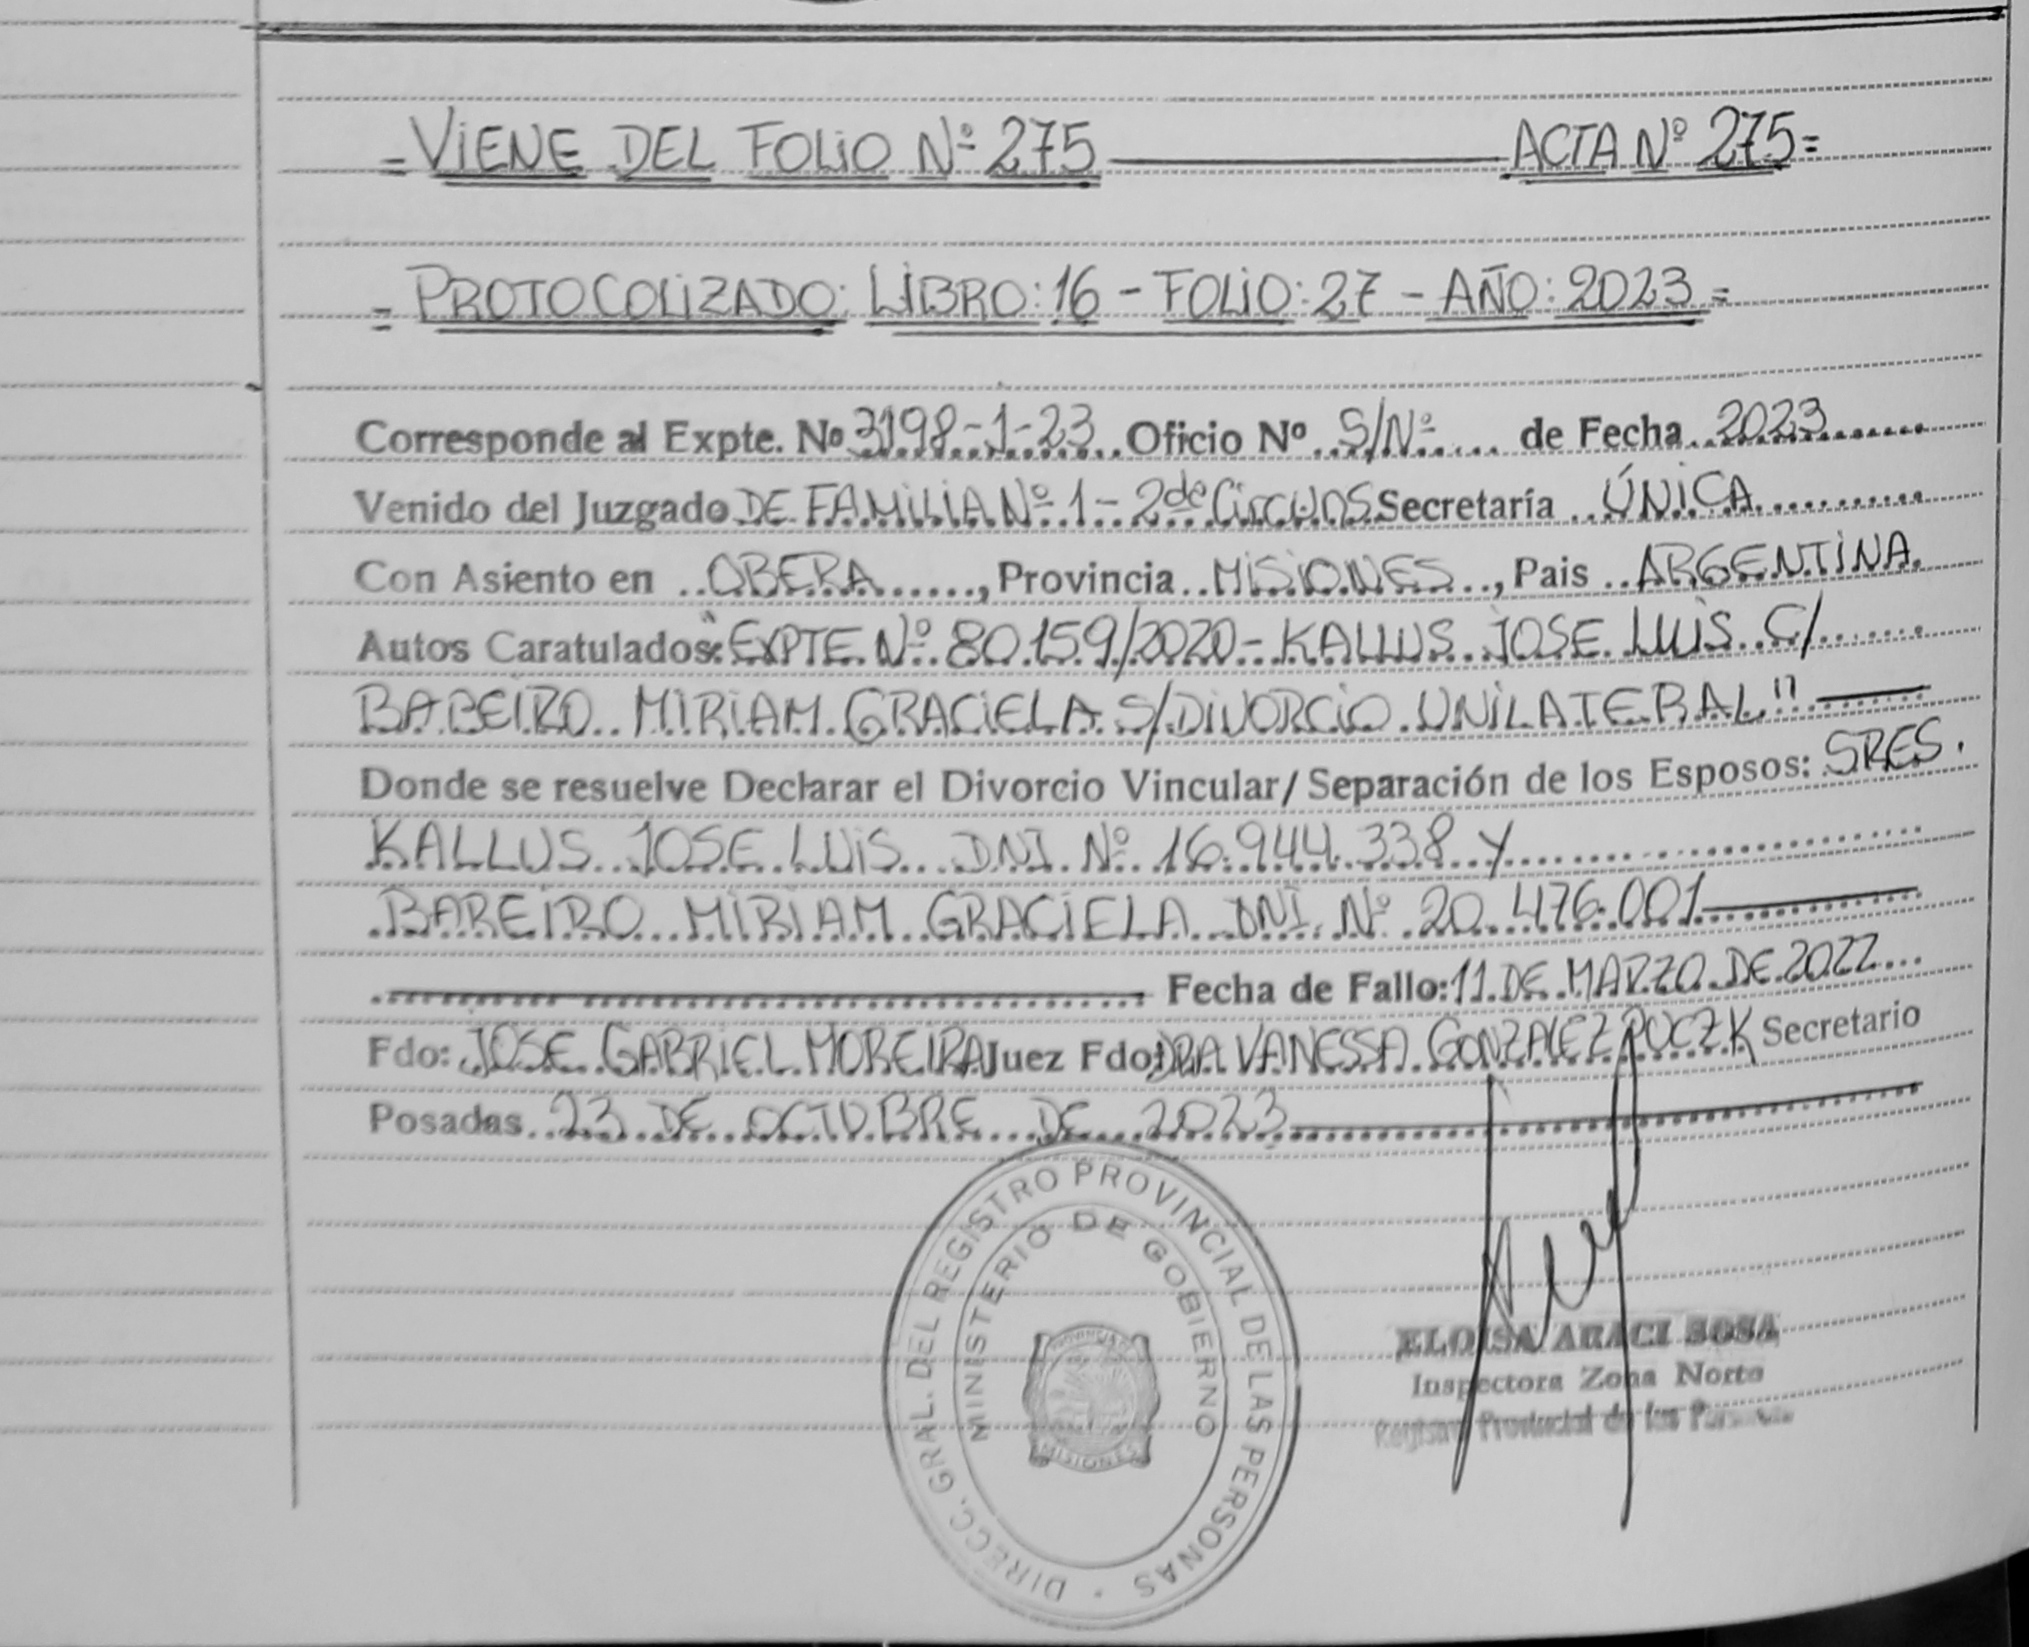 = VIENE DEL FOLIO Nº 275 ACTA Nº 275 =
= PROTOCOLIZADO: LIBRO: 16 - FOLIO: 27 - AÑO: 2023 =
Corresponde al Expte. Nº 3198-1-23 Oficio Nº S/Nº de Fecha 2023
Venido del Juzgado DE FAMILIA Nº 1 - 2da Circuns Secretaría ÚNICA
Con Asiento en OBERA, Provincia MISIONES, Pais ARGENTINA.
Autos Caratulados: "EXPTE Nº 80.159/2020 - KALLUS JOSE LUIS C/
BAREIRO MIRIAM GRACIELA S/DIVORCIO UNILATERAL"
Donde se resuelve Declarar el Divorcio Vincular/ Separación de los Esposos: SRES.
KALLUS JOSE LUIS DNI Nº 16.944.338 Y
BAREIRO MIRIAM GRACIELA DNI Nº 20.476.001
Fecha de Fallo: 11 DE MARZO DE 2022
Fdo: JOSE GABRIEL MOREIRA Juez Fdo: DRA VANESSA GONZALEZ POCZK Secretario
Posadas 23 DE OCTUBRE DE 2023
DIRECC. GRAL. DEL REGISTRO PROVINCIAL DE LAS PERSONAS
MINISTERIO DE GOBIERNO
PROVINCIA DE
MISIONES
ELOISA ARACI SOSA
Inspectora Zona Norte
Registro Provincial de las Personas